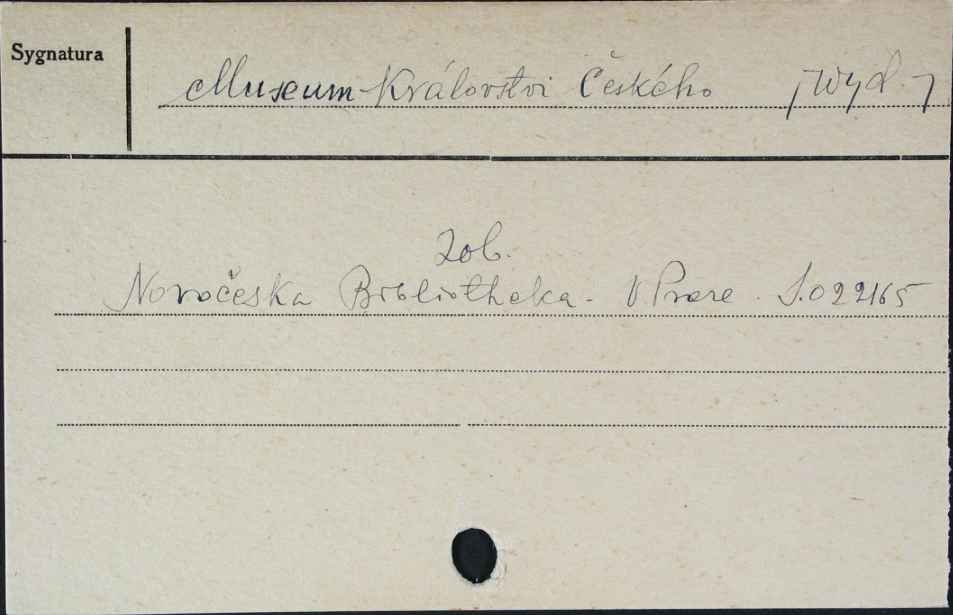 Sygnatura
Museum Království Českého [Wyd.]
Zob.
Novočeska Bibliotheka. V Praze. S.022165